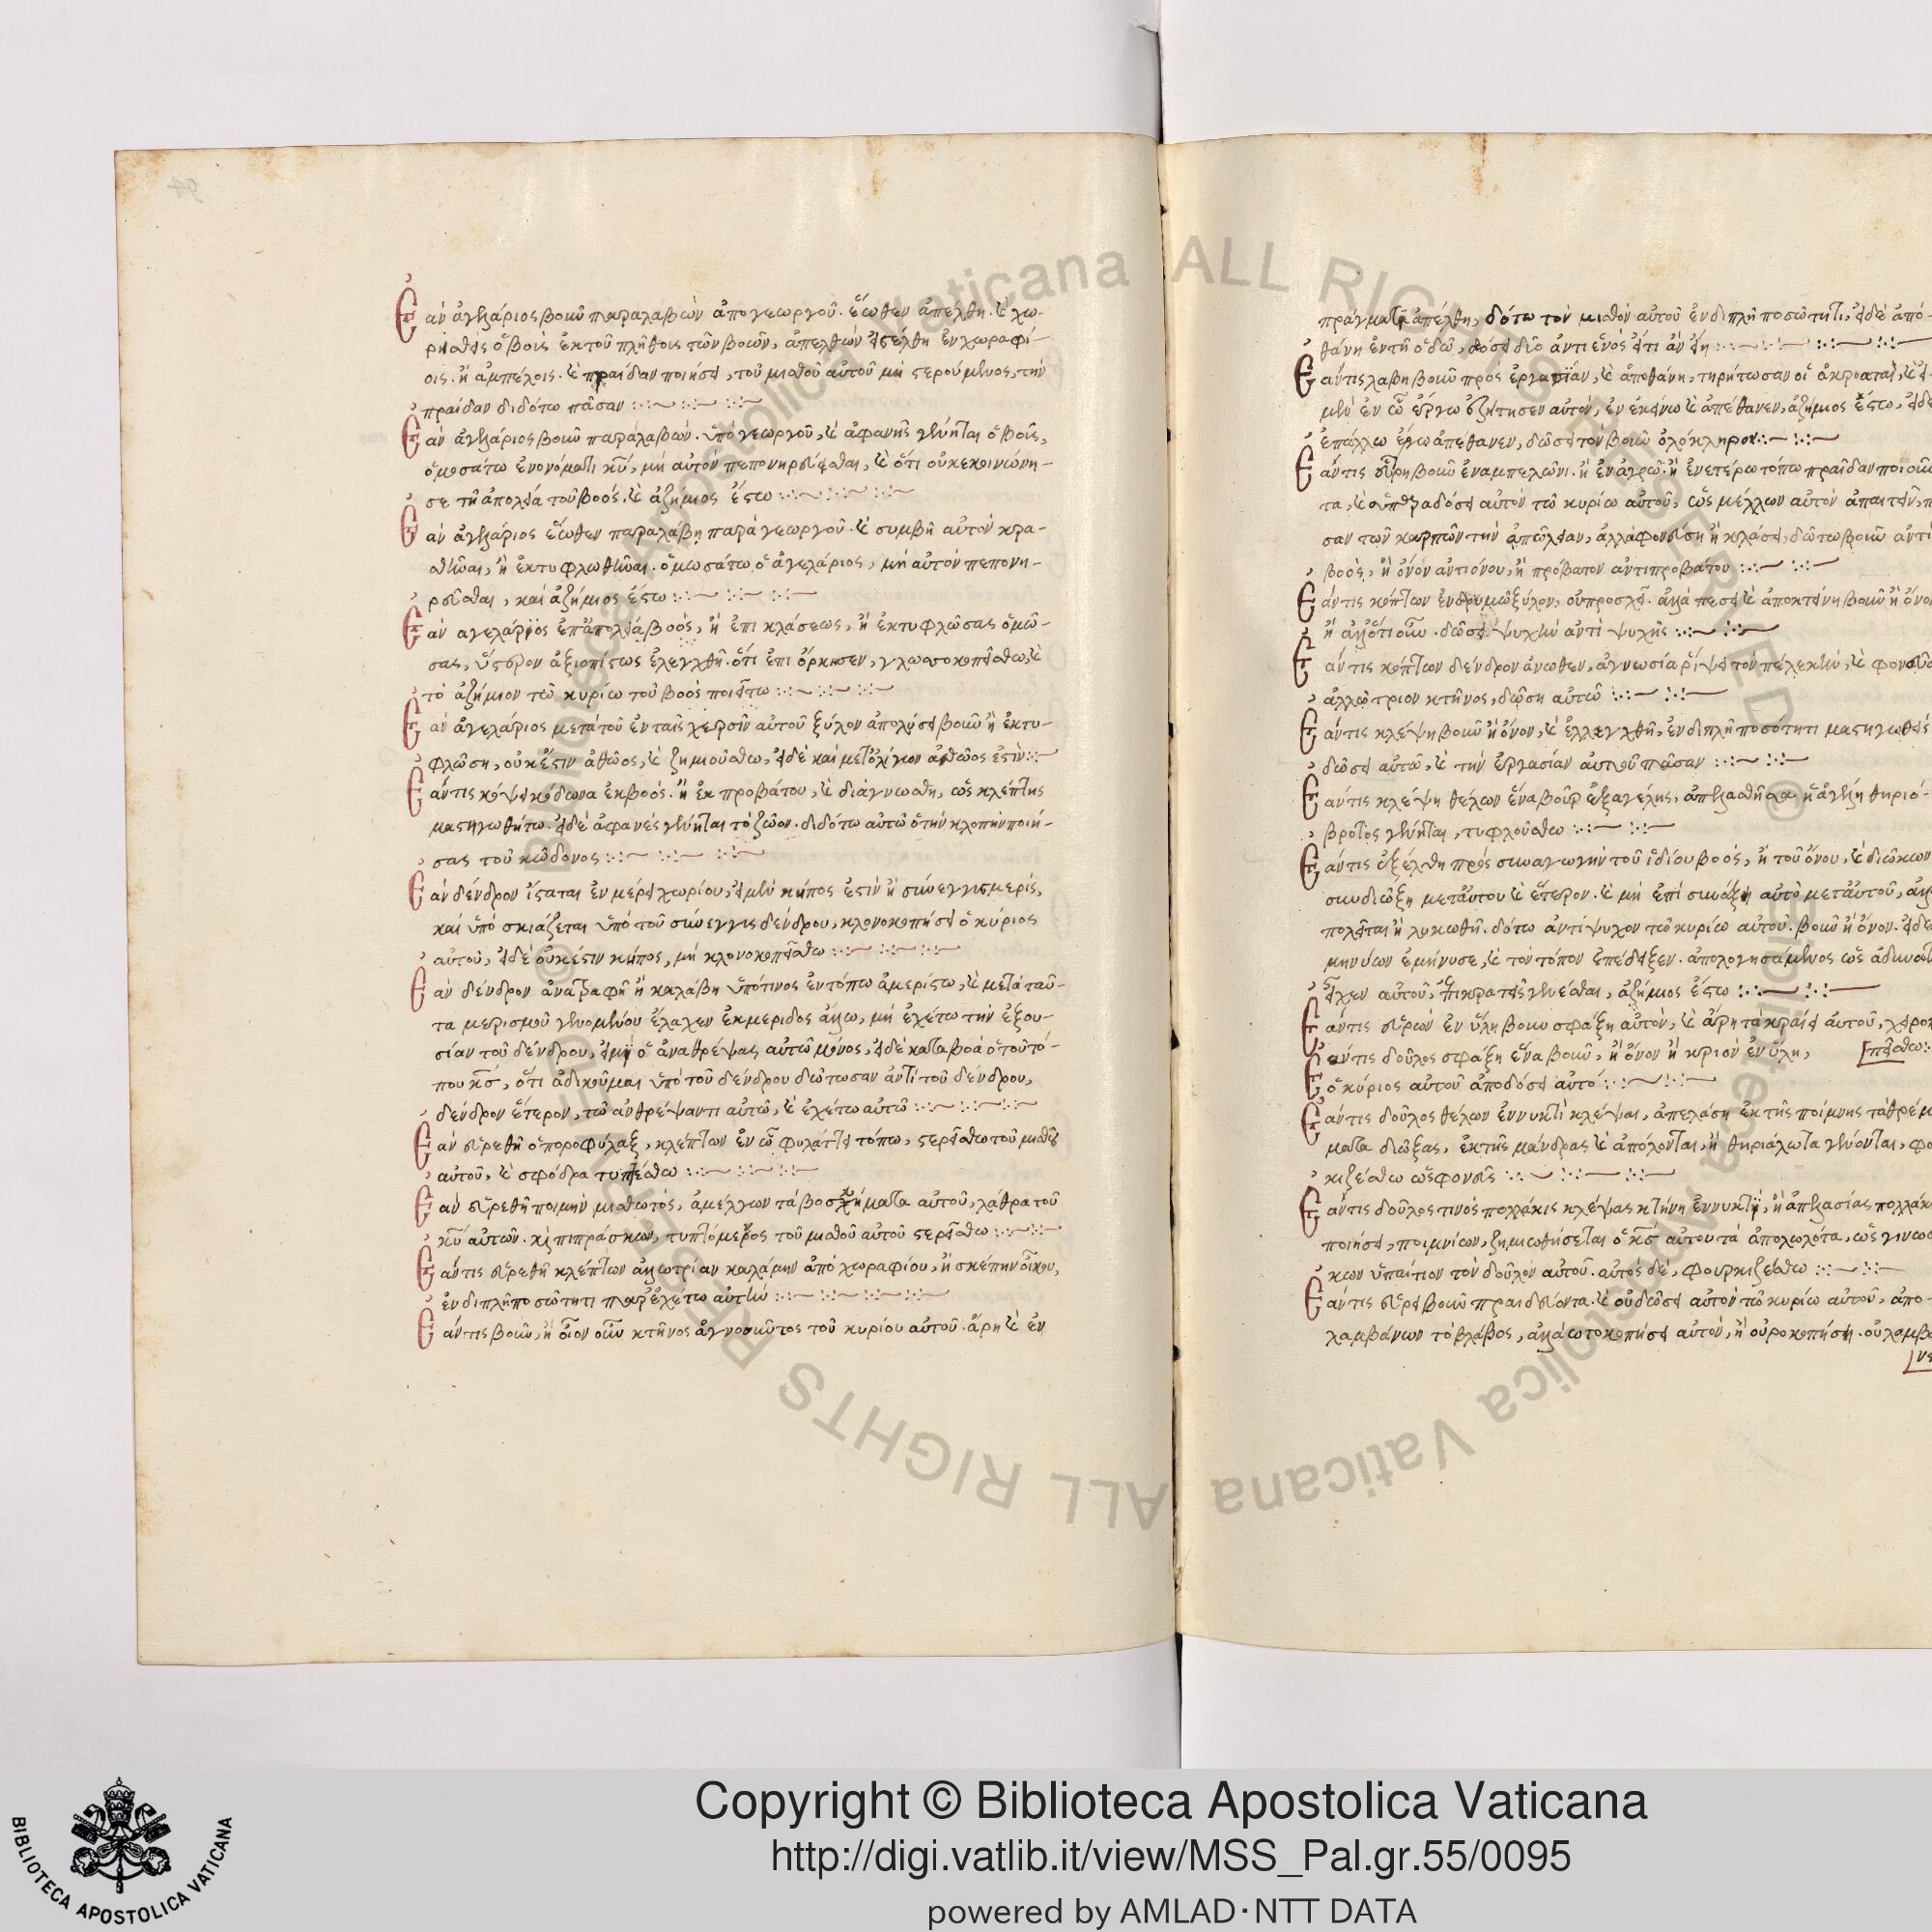 Ἐὰν ἀγελάριος βοῦν παραλαβὼν ἀπὸ γεωργοῦ. ἕωθεν ἀπέλθη. καὶ χω-
ρισθεὶς ὁ βοῦς ἐκ τοῦ πλήθους τῶν βοῶν, ἀπελθὼν εἰσέλθη ἐν χωραφί-
οις. ἢ ἀμπέλοις. καὶ πραίδαν ποιήσει, τοῦ μισθοῦ αὐτοῦ μὴ στερούμενος, τὴν
πραίδαν διδότω πᾶσαν
Ἐὰν ἀγελάριος βοῦν παραλαβὼν. ὑπὸ γεωργοῦ, καὶ ἀφανὴς γένηται ὁ βοῦς,
ὀμοσάτω ἐν ὀνόματι κυ, μὴ αὐτὸν πεπονηρεύσθαι, καὶ ὅτι οὐκ ἐκοινώνη-
σε τῆ ἀπολεία τοῦ βοός. καὶ ἀζήμιος ἔστω
Ἐὰν ἀγελάριος ἕωθεν παραλάβη παρὰ γεωργοῦ. καὶ συμβῆ αὐτὸν κρα-
σθῆναι, ἢ ἐκτυφλωθῆναι. ὀμωσάτω ὁ ἀγελάριος, μὴ αὐτὸν πεπονη-
ρεῦσθαι, καὶ ἀζήμιος ἔστω
Ἐὰν ἀγελάριος ἐπ' ἀπολεία βοὸς, ἢ ἐπὶ κλάσεως, ἢ ἐκτυφλῶσας ὀμώ-
σας, ὕστερον ἀξιοπίστως ἐλεγχθῆ. ὅτι ἐπιόρκησεν, γλωσσοκοπείσθω, καὶ
τὸ ἀζήμιον τῶ κυρίω τοῦ βοὸς ποιείτω
Ἐὰν ἀγελάριος μετὰ τοῦ ἐν ταῖς χερσὶν αὐτοῦ ξύλον ἀπολύσει βοῦν ἢ ἐκτυ-
φλώση, οὐκ ἔστιν ἀθῶος, καὶ ζημιούσθω, εἰ δὲ καὶ μετ' ὀλίγον ἀθῶος ἐστὶν
Ἐάν τις κόψει κόδωνα ἐκ βοὸς. ἢ ἐκ προβάτου, καὶ διάγνωσθη, ὡς κλέπτης
μαστηγωθήτω. εἰ δὲ ἀφανὲς γένηται τὸ ζῶον. διδότω αὐτῶ ὁ τὴν κλοπὴν ποιή-
σας τοῦ κώδονος
Ἐὰν δένδρον ἵσταται ἐν μέρει χωρίου, εἰ μὲν κήπος ἐστὶν ἡ σύνεγγις μερίς,
καὶ ὑποσκιάζεται ὑπὸ τοῦ σύνεγγις δένδρου, κλονοκοπήσει ὁ κύριος
αὐτοῦ, εἰ δὲ οὐκ ἔστιν κήπος, μὴ κλονοκοπείσθω
Ἐὰν δένδρον ἀνατραφῆ ἢ καλάβη ὑπό τινος ἐν τόπω ἀμερίστω, καὶ μετὰ ταῦ-
τα μερισμοῦ γενομένου ἔλαχεν ἐκ μερίδος ἄλλω, μὴ ἐχέτω τὴν ἐξου-
σίαν τοῦ δένδρου, εἰ μὴ ὁ ἀναθρέψας αὐτῶ μόνος, εἰ δὲ καταβοὰ ὁ τοῦ τό-
που κς, ὅτι ἀδικοῦμαι ὑπὸ τοῦ δένδρου διώτωσαν ἀντὶ τοῦ δένδρου,
δένδρον ἕτερον, τῶ ἀνθρέψαντι αὐτῶ, καὶ ἐχέτω αὐτῶ
Ἐὰν εὑρεθῆ ὀποροφύλαξ, κλέπτων ἐν ὧ φυλάττει τόπω, στερείσθω τοῦ μισθοῦ
αὐτοῦ, καὶ σφόδρα τυπτέσθω
Ἐὰν εὑρεθῆ ποιμὴν μισθωτὸς, ἀμέλγων τὰ βοσκήματα αὐτοῦ, λάθρα τοῦ
κυ αὐτῶν. καὶ πιπράσκων, τυπτόμενος τοῦ μισθοῦ αὐτοῦ στερείσθω
Ἐάν τις εὑρεθῆ κλέπτων ἀλλωτρίαν καλάμην ἀπὸ χωραφίου, ἢ σκέπην οἴκου,
ἐν διπλῆ ποσώτητι παρεχέτω αὐτὴν
Ἐάν τις βοῦν, ἢ οἷον οὖν κτῆνος ἀγνοοῦντος τοῦ κυρίου αὐτοῦ. ἄρη καὶ ἐν
πράγματι ἀπέλθη, δότω τὸν μισθὸν αὐτοῦ ἐν διπλῆ ποσώτητι, εἰ δὲ ἀπο-
θάνη ἐν τῆ ὁδῶ, δόσει δύο ἀντὶ ἑνὸς εἴ τι ἂν εἴη
Ἐάν τις λάβη βοῦν πρὸς ἐργασίαν, καὶ ἀποθάνη, τηρήτωσαν οἱ ἀκροαταὶ, καὶ εἰ
μὲν ἐν ὧ ἔργω ἐζήτησεν αὐτὸν, ἐν ἐκείνω καὶ ἀπέθανεν, ἀζήμιος ἔστω, εἰ δὲ
ἐπ' ἄλλω ἔργω ἀπέθανεν, δώσει τὸν βοῦν ὁλόκληρον
Ἐάν τις εὕρη βοῦν ἐν ἀμπελῶνι. ἢ ἐν ἀγρῶ. ἢ ἐν ἑτέρω τόπω πραῖδαν ποιοῦν
τα, καὶ οὐ παραδόσει αὐτὸν τῶ κυρίω αὐτοῦ, ὡς μέλλων αὐτὸν ἀπαιτεῖν,
σαν τῶν καρπῶν τὴν ἀπώλειαν, ἀλλὰ φονεύση ἢ κλάσει, δώτω βοῦν ἀντὶ
βοὸς, ἢ ὄνον ἀντὶ ὄνου, ἢ πρόβατον ἀντὶ προβάτου
Ἐάν τις κόπτων ἐν δρυμῶ ξύλον, οὐ προσχεῖ. ἀλλὰ πέσει καὶ ἀποκτείνη βοῦν ἢ ὄνον
ἢ ἄλλο ὅτι οὖν. δώσει ψυχὴν ἀντὶ ψυχῆς
Ἐάν τις κόπτων δένδρον ἄνωθεν, ἀγνωσία ῥίψει τὸν πέλεκυν, καὶ φονεύσ
ἀλλώτριον κτῆνος, δώση αὐτῶ
Ἐάν τις κλέψη βοῦν ἢ ὄνον, καὶ ἐλλεγχθῆ, ἐν διπλῆ ποσότητι μαστηγωθεὶς
δώσει αὐτῶ, καὶ τὴν ἐργασίαν αὐτοῦ πᾶσαν
Ἐάν τις κλέψη θέλων ἕνα βοῦν ἐξ ἀγέλης, ἀπελασθῆσα ἡ ἀγέλη θηριό-
βροτος γένηται, τυφλούσθω
Ἐάν τις ἐξέλθη πρὸς συναγωγὴν τοῦ ἰδίου βοὸς, ἢ τοῦ ὄνου, καὶ διώκων
συνδιώξη μετ' αὐτοῦ καὶ ἕτερον. καὶ μὴ ἐπισυνάξη αὐτὸ μετ' αὐτοῦ, ἀλλ
πολεῖται ἢ λυκωθῆ. δότω ἀντίψυχον τῶ κυρίω αὐτοῦ. βοῦν ἢ ὄνον. εἰ δὲ
μηνύων ἐμήνυσε, καὶ τὸν τόπον ἐπέδειξεν. ἀπολογησάμενος ὡς ἀδυνατ
εἶχεν αὐτοῦ, ἐπικρατεῖς γενέσθαι, ἀζήμιος ἔστω
Ἐάν τις εὑρὼν ἐν ὕλη βοῦν σφάξη αὐτὸν, καὶ ἄρη τὰ κραίει αὐτοῦ, χειροκ
Ἐάν τις δοῦλος σφάξη ἕνα βοῦν, ἢ ὄνον ἢ κριὸν ἐν ὕλη, [πείσθω
ὁ κύριος αὐτοῦ ἀποδόσει αὐτό
Ἐάν τις δοῦλος θέλων ἐν νυκτὶ κλέψαι, ἀπελάση ἐκ τῆς ποίμνης τὰ θρέμ
ματα διώξας, ἐκ τῆς μάνδρας καὶ ἀπόλονται, ἢ θηριάλωτα γένονται, φο
κιζέσθω ὡς φονεύς
Ἐάν τις δοῦλος τινὸς πολλάκις κλέψας κτήνη ἐν νυκτὶ, ἢ ἀπελασίας πολλάκ
ποιήσει, ποιμνίων, ζημιωθήσεται ὁ κς αὐτοῦ τὰ ἀπολωλότα, ὡς γινώσ
κων ὑπαίτιον τὸν δοῦλον αὐτοῦ. αὐτὸς δὲ, φουρκιζέσθω
Ἐάν τις εὕρει βοῦν πραιδεύοντα. καὶ οὐ δώσει αὐτὸν τῶ κυρίω αὐτοῦ, ἀπο-
λαμβάνων τὸ βλάβος, ἀλλὰ ὠτοκοπήσει αὐτὸν, ἢ οὐροκοπήση. οὐ λαμβ
Copyright © Biblioteca Apostolica Vaticana
http://digi.vatlib.it/view/MSS_Pal.gr.55/0095
powered by AMLAD·NTT DATA
BIBLIOTECA APOSTOLICA VATICANA